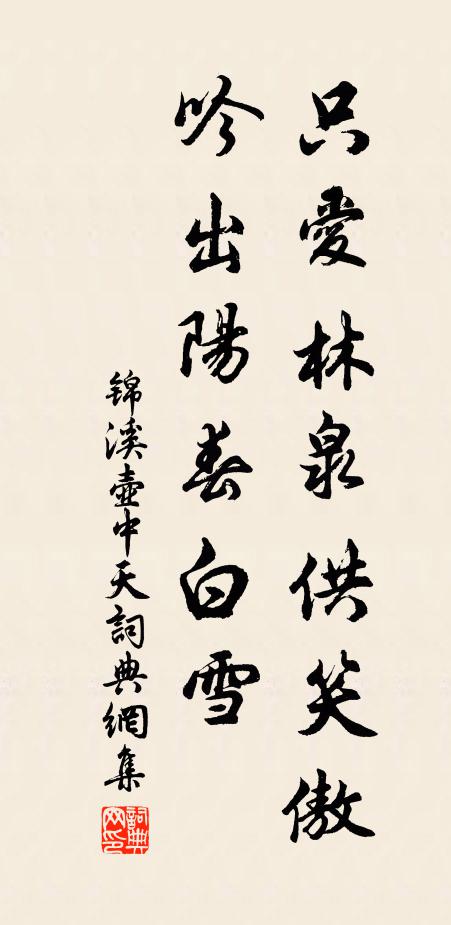 只愛林泉供笑傲
吟出陽春白雪
锦溪壺中天詞典網集
詞典网印